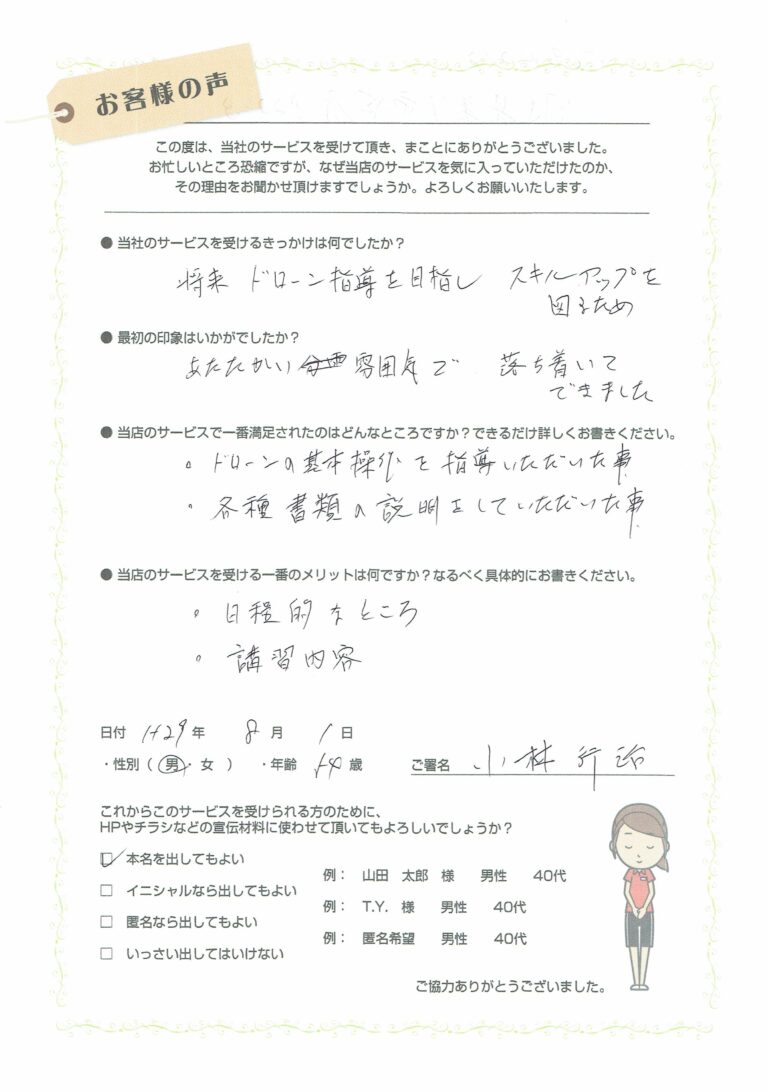 お客様の声
この度は、当社のサービスを受けて頂き、まことにありがとうございました。
お忙しいところ恐縮ですが、なぜ当店のサービスを気に入っていただけたのか、
その理由をお聞かせ頂けますでしょうか。よろしくお願いいたします。
● 当社のサービスを受けるきっかけは何でしたか？
将来 ドローン指導を目指し スキルアップを
図るため
● 最初の印象はいかがでしたか？
あたたかい 雰囲気で 落ち着いて
できました
● 当店のサービスで一番満足されたのはどんなところですか？できるだけ詳しくお書きください。
・ドローンの基本操作を指導いただいた事
・各種書類の説明をしていただいた事
● 当店のサービスを受ける一番のメリットは何ですか？なるべく具体的にお書きください。
・日程的なところ
・講習内容
日付 H29年 8月 1日
・性別（ 男・女 ） ・年齢 歳 ご署名 小林
これからこのサービスを受けられる方のために、
HPやチラシなどの宣伝材料に使わせて頂いてもよろしいでしょうか？
☑ 本名を出してもよい 例： 山田 太郎 様 男性 40代
□ イニシャルなら出してもよい 例： T.Y. 様 男性 40代
□ 匿名なら出してもよい 例： 匿名希望 男性 40代
□ いっさい出してはいけない
ご協力ありがとうございました。